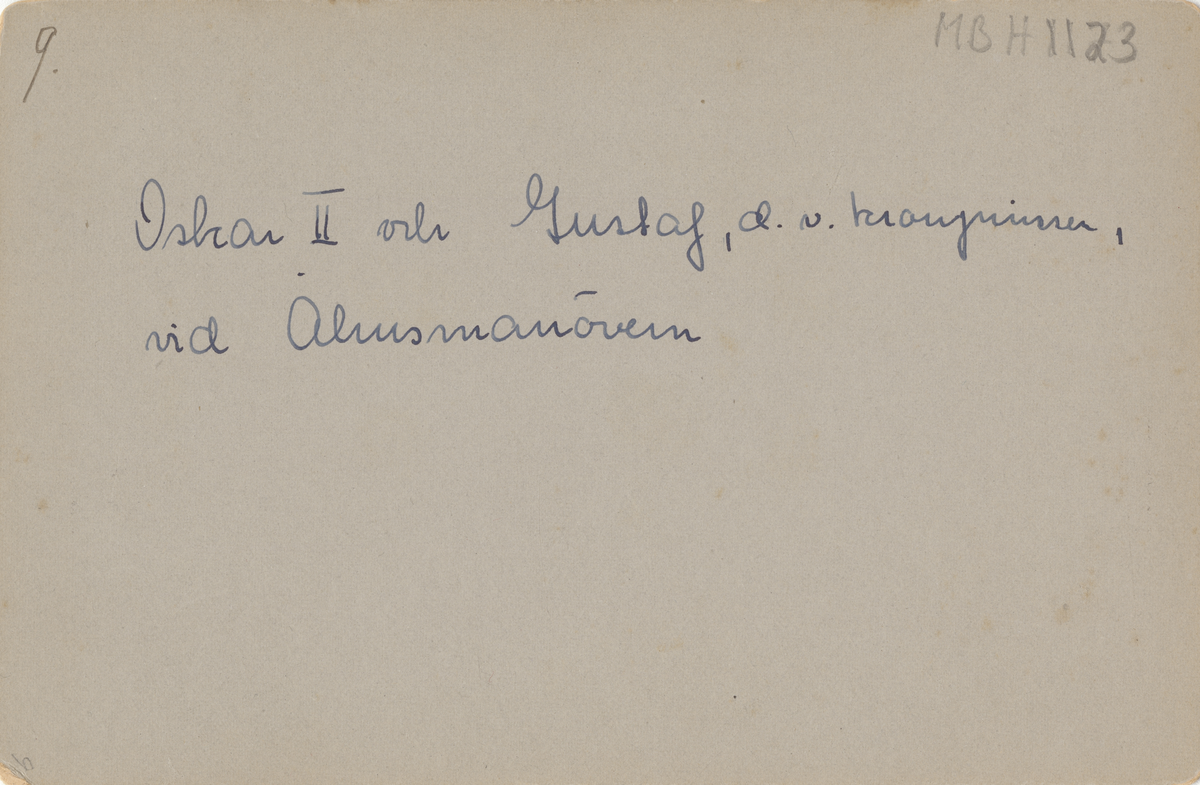 9.
MBH1123
Oskar II och Gustaf, d. v. kronprinsen,
vid Älmsmanövern